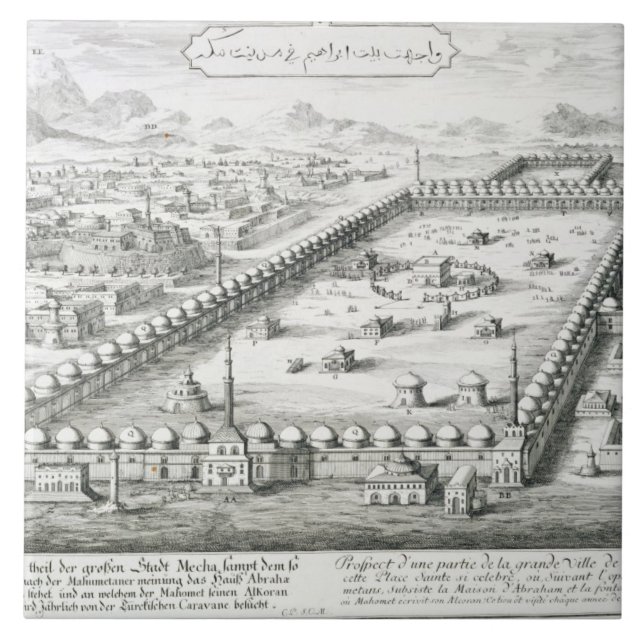 واجهت بيت ابراهيم في مدينت مكه
EE
DD
X
P
F
G
K
Q
Q
AA
BB
theil der großen Stadt Mecha, sampt dem so
nach der Mahumetaner meinung das Hauß Abrahæ
stehet und an welchem der Mahomet seinen Alkoran
Jährlich von der Türckischen Caravane besücht.
C.P.S.C.M.
Prospect d'une partie de la grande Ville de
cette Place Sainte si celebre, ou, Suivant l'op
metans, Subsiste la Maison d'Abraham et la fonta
où Mahomet ecrivit son Alcoran. Ce lieu est visité chaque année de